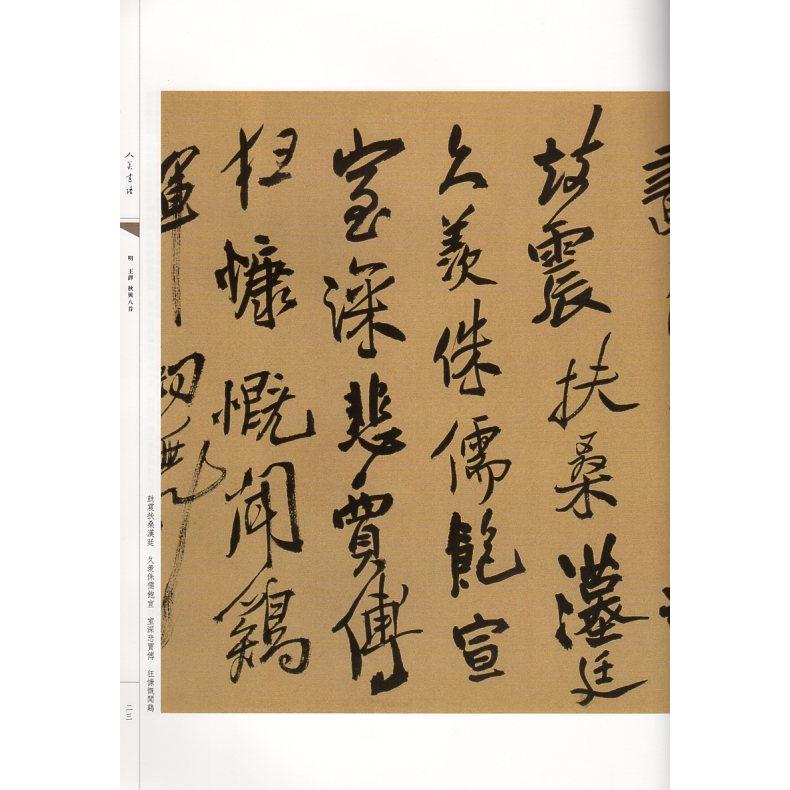 鼓震扶桑漢廷
久羨侏儒飽宣
室深悲賈傅
狂慷慨聞鷄
人美書譜
明 王鐸 秋興八首
鼓震扶桑漢廷 久羨侏儒飽宣 室深悲賈傅 狂慷慨聞鷄
二三